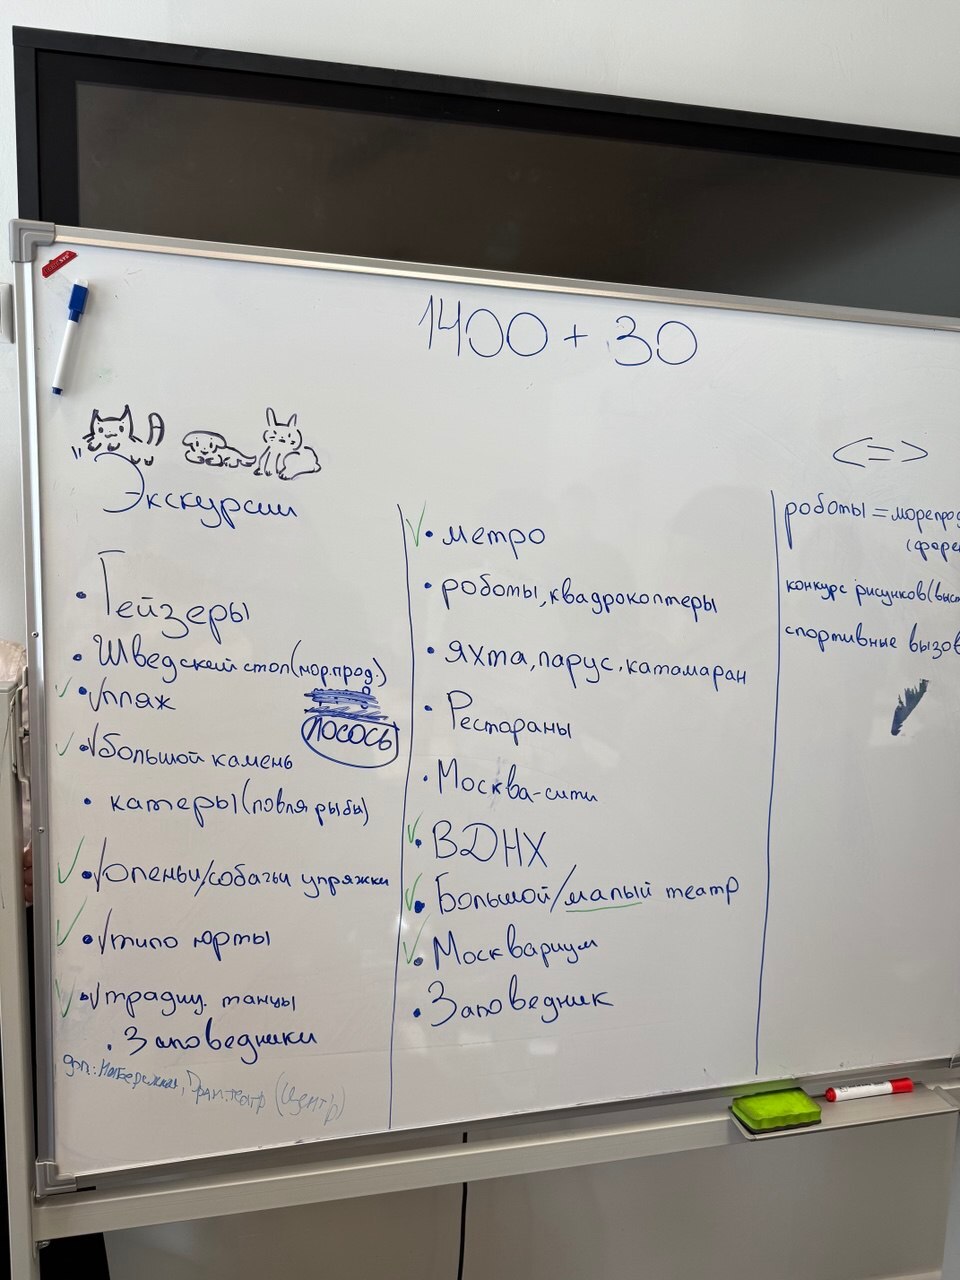 1400 + 30
Экскурсии
• Гейзеры
• Шведский стол (мор.прод.)
✓ • √ пляж
лосось
✓ • √ большой камень
• катеры (ловля рыбы)
✓ • √ олени/собачьи упряжки
✓ • √ типо юрты
✓ • √ традиц. танцы
• Заповедники
доп.: Набережная, Драм.театр (Центр)
✓ • метро
• роботы, квадрокоптеры
• яхта, парус, катамаран
• Рестораны
• Москва-сити
✓ • ВДНХ
✓ • Большой/малый театр
✓ • Москвариум
• Заповедник
<=>
роботы = морепрод
(форе
конкурс рисунков (выст
спортивные вызов